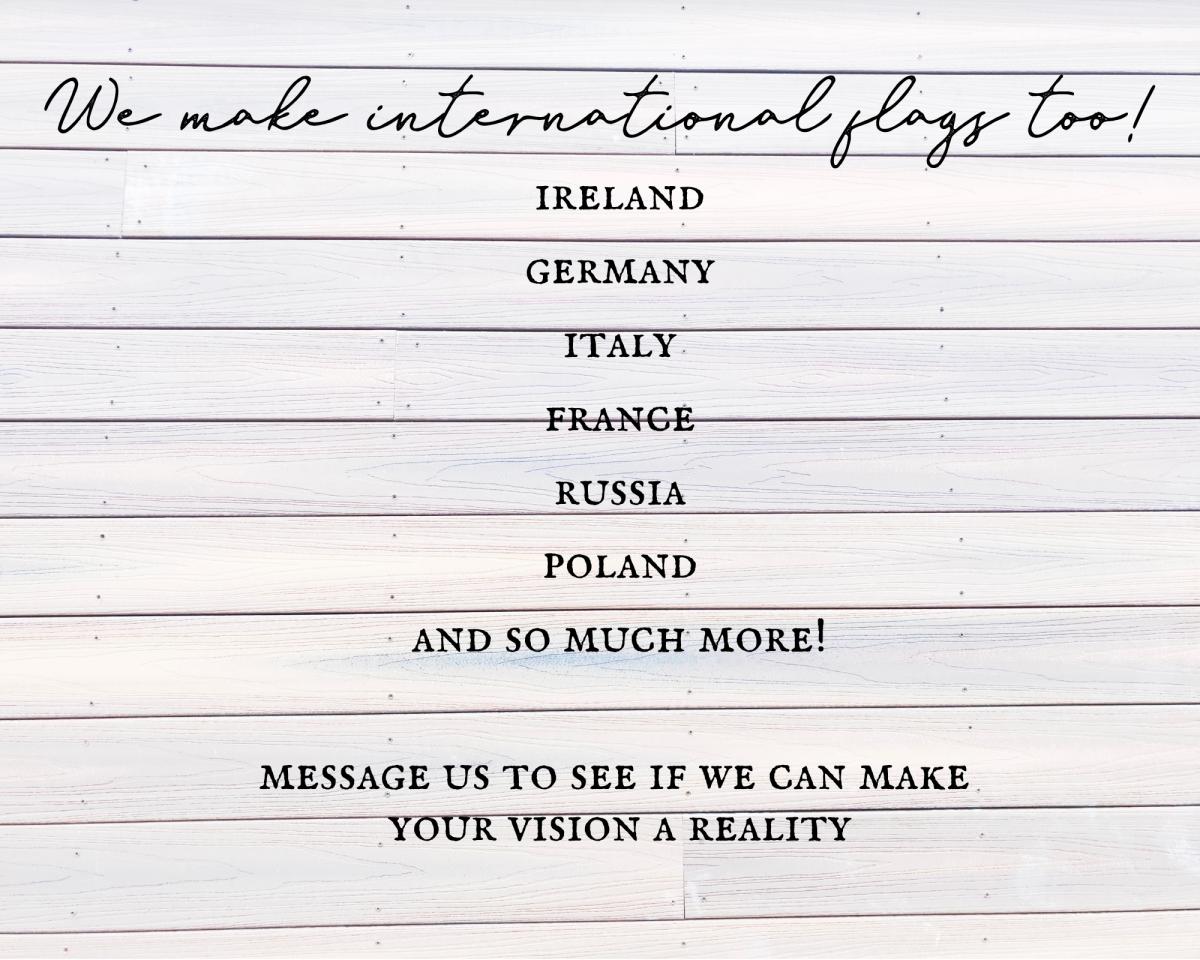 We make international flags too!
IRELAND
GERMANY
ITALY
FRANCE
RUSSIA
POLAND
AND SO MUCH MORE!
MESSAGE US TO SEE IF WE CAN MAKE
YOUR VISION A REALITY